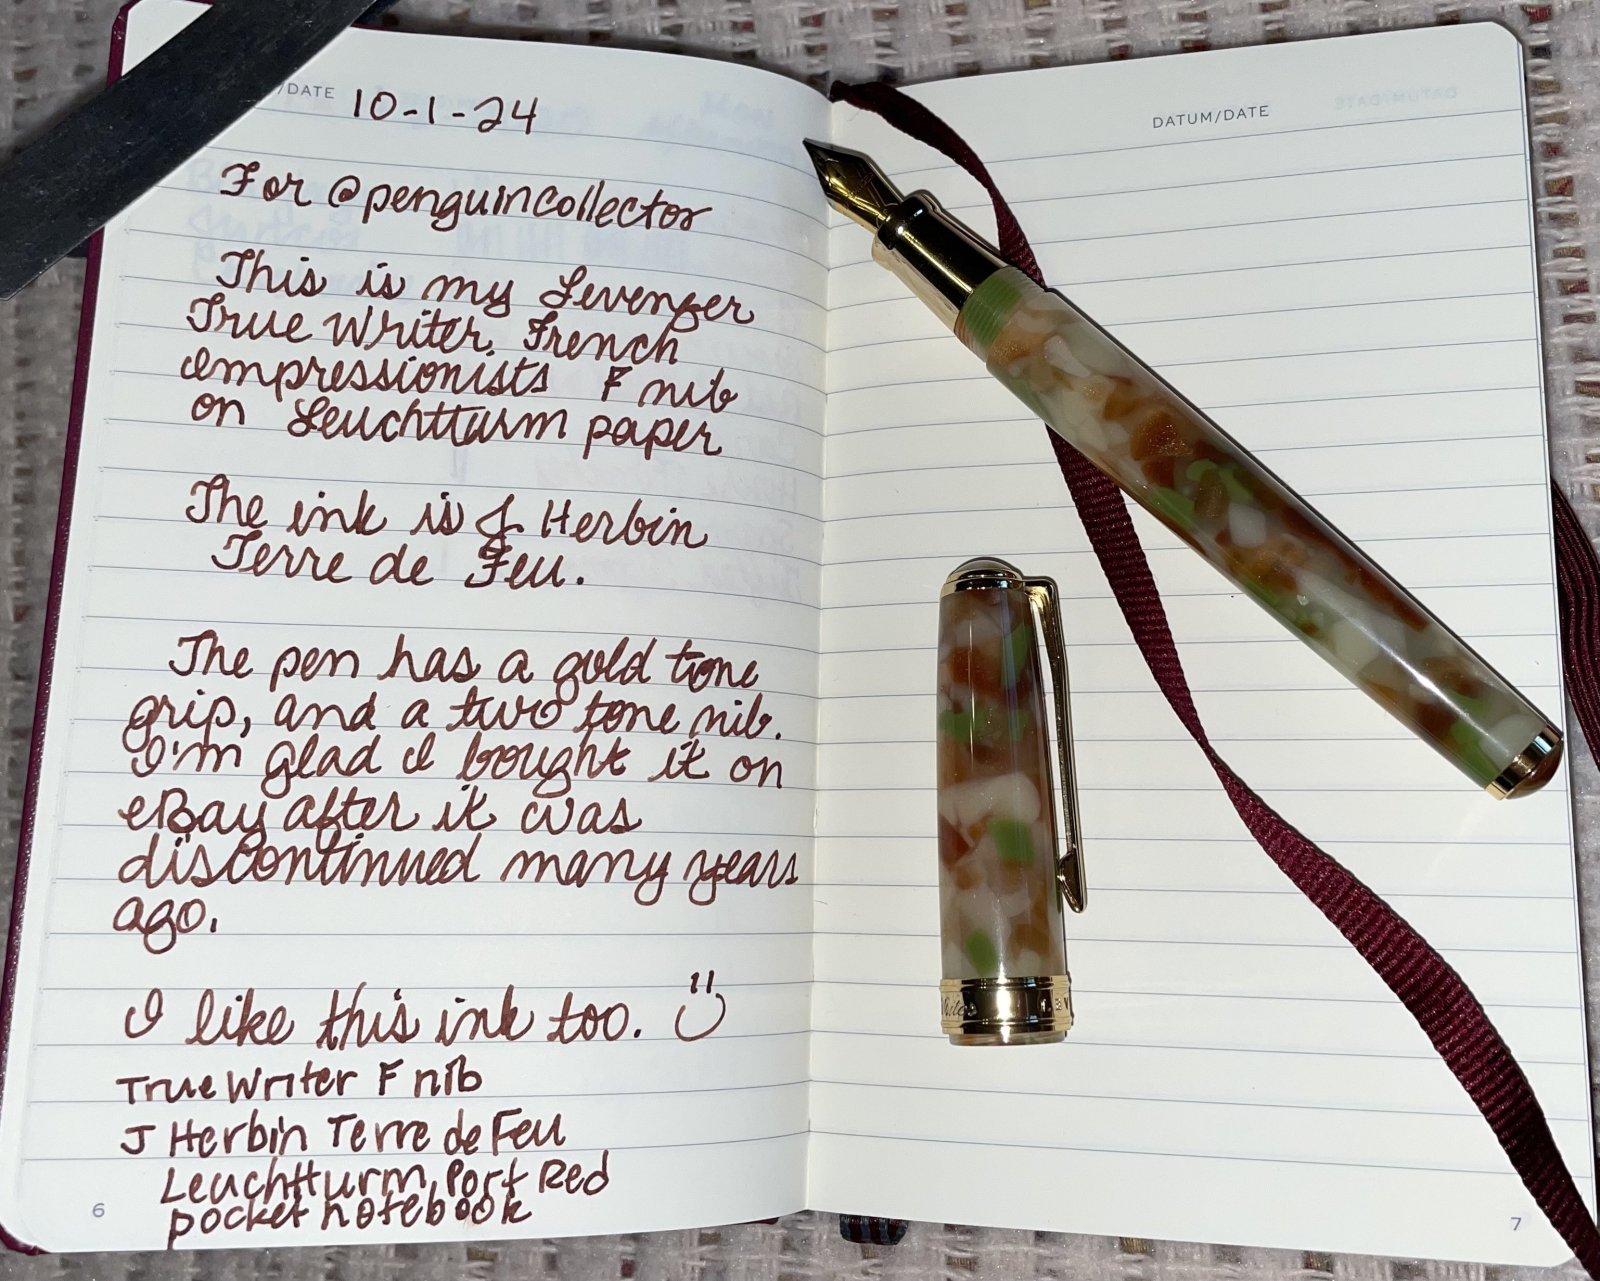 /DATE 10-1-24
For @penguincollector
This is my Levenger
True Writer French
Impressionists F nib
on Leuchtturm paper
The ink is J Herbin
Terre de Feu.
The pen has a gold tone
grip, and a two tone nib.
I'm glad I bought it on
eBay after it was
discontinued many years
ago.
I like this ink too.
True Writer F nib
J Herbin Terre de Feu
Leuchtturm Port Red
pocket notebook
6
DATUM/DATE
7